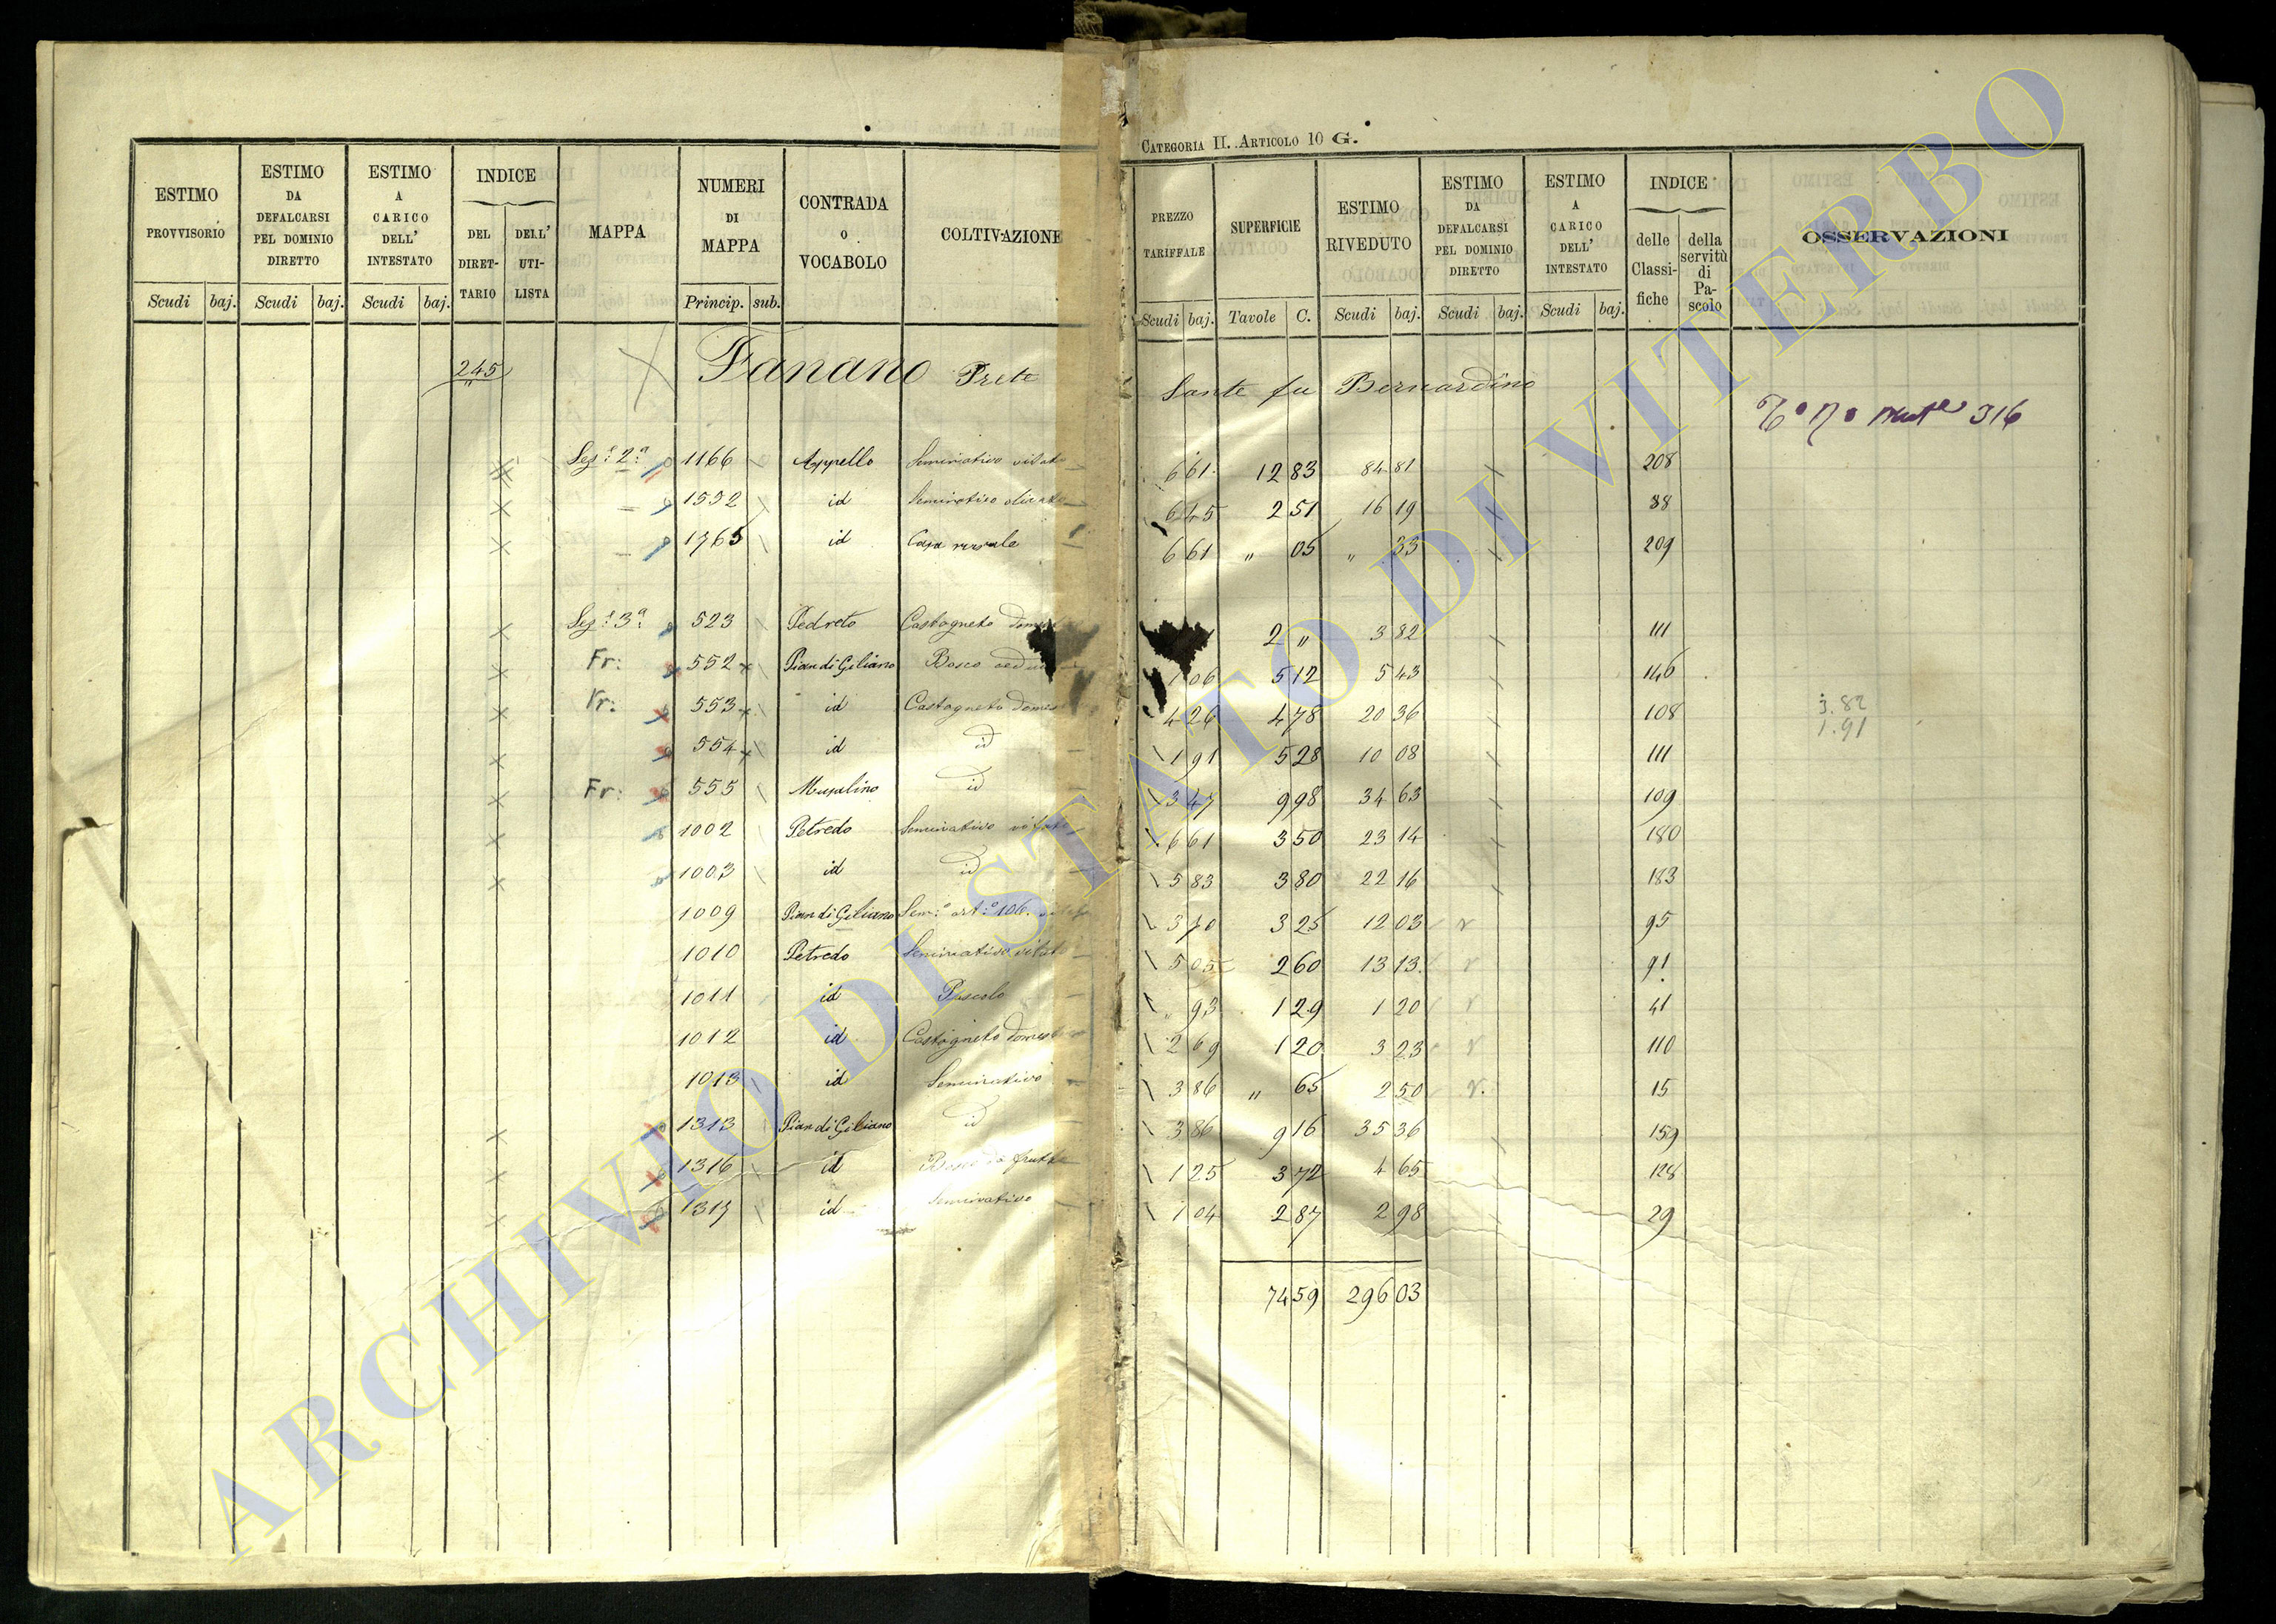 CATEGORIA II. ARTICOLO 10 G.
ESTIMO PROVVISORIO Scudi baj. ESTIMO DA DEFALCARSI PEL DOMINIO DIRETTO Scudi baj. ESTIMO A CARICO DELL' INTESTATO Scudi baj. INDICE DEL DIRET-TARIO DELL' UTI-LISTA MAPPA NUMERI DI MAPPA Princip. sub. CONTRADA O VOCABOLO COLTIVAZIONE PREZZO TARIFFALE Scudi baj. SUPERFICIE Tavole C. ESTIMO RIVEDUTO Scudi baj. ESTIMO DA DEFALCARSI PEL DOMINIO DIRETTO Scudi baj. ESTIMO A CARICO DELL' INTESTATO Scudi baj. INDICE delle Classi-fiche della servitù di Pa-scolo OSSERVAZIONI
245 Fanano Prete Sante fu Bernardino
316
Sez.e 2.a 1166 Appello Seminativo vitato 6 61 12 83 84 81 208
1532 id Seminativo olivato 6 45 2 51 16 19 88
1765 id Casa rurale 6 61 " 05 " 33 209
Sez.e 3.a 523 Pedreto Castagneto 2 " 3 82 111
Fr: 552 Pian di Giliano Bosco ceduo 1 06 5 12 5 43 146
Fr: 553 id Castagneto domes 4 26 4 78 20 36 108 3.82
1.91
554 id id 1 91 5 28 10 08 111
Fr: 555 Musalino id 3 47 9 98 34 63 109
1002 Petredo Seminativo vitato 6 61 3 50 23 14 180
1003 id id 5 83 3 80 22 16 183
1009 Pian di Giliano Sem.o art.o 106. 3 70 3 25 12 03 95
1010 Petredo Seminativo vitato 5 05 2 60 13 13 91
1011 id Pascolo " 93 1 29 1 20 41
1012 id Castagneto domest 2 69 1 20 3 23 110
1013 id Seminativo 3 86 " 65 2 50 15
1313 Pian di Giliano id 3 86 9 16 35 36 159
1316 id Bosco da frutto 1 25 3 72 4 65 128
1317 id Seminativo 1 04 2 87 2 98 29
74 59 296 03
ARCHIVIO DI STATO DI VITERBO